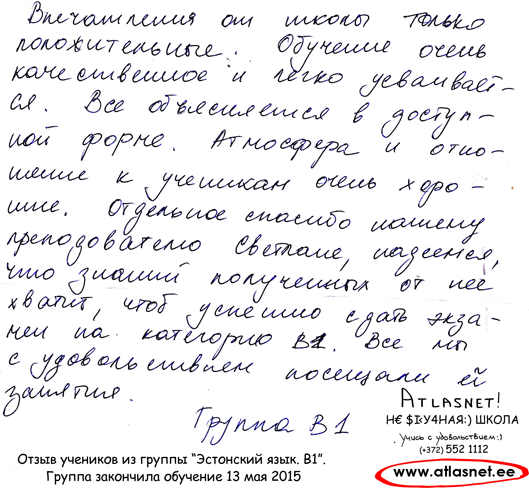 Впечатления от школы только
положительные. Обучение очень
качественное и легко усваивает-
ся. Все объясняется в доступ-
ной форме. Атмосфера и отно-
шение к ученикам очень хоро-
шие. Отдельное спасибо нашему
преподователю Светлане, надеемся,
что знаний полученных от неё
хватит, чтоб успешно сдать экза-
мен на категорию B1. Все мы
с удовольствием посещали её
занятия.
Группа B1
ATLASNET!
Н€ $I:У4НАЯ:) ШКОЛА
Учись с удовольствием :)
(+372) 552 1112
www.atlasnet.ee
Отзыв учеников из группы "Эстонский язык. B1".
Группа закончила обучение 13 мая 2015